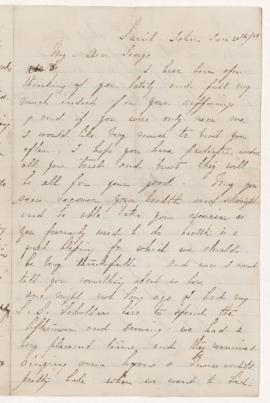 Saint John, Jan
My Dear George
I have been often
thinking of you lately and felt very
much indeed for your sufferings
and if you were only near me
I would like very much to visit you
often. I hope you have patience under
all your trials and trust this will
be all for your good. May you
soon recover your health and strength
and be able to your as
you formerly used to do health is a
great blessing for which we should
be very thankfull. And now I want
tell you something about us here
one night not long ago I had my
S. S. Scholars here to spend the
afternoon and Evening we had a
very pleasant time, and they remained
singing some hymns &
pretty late when we went to